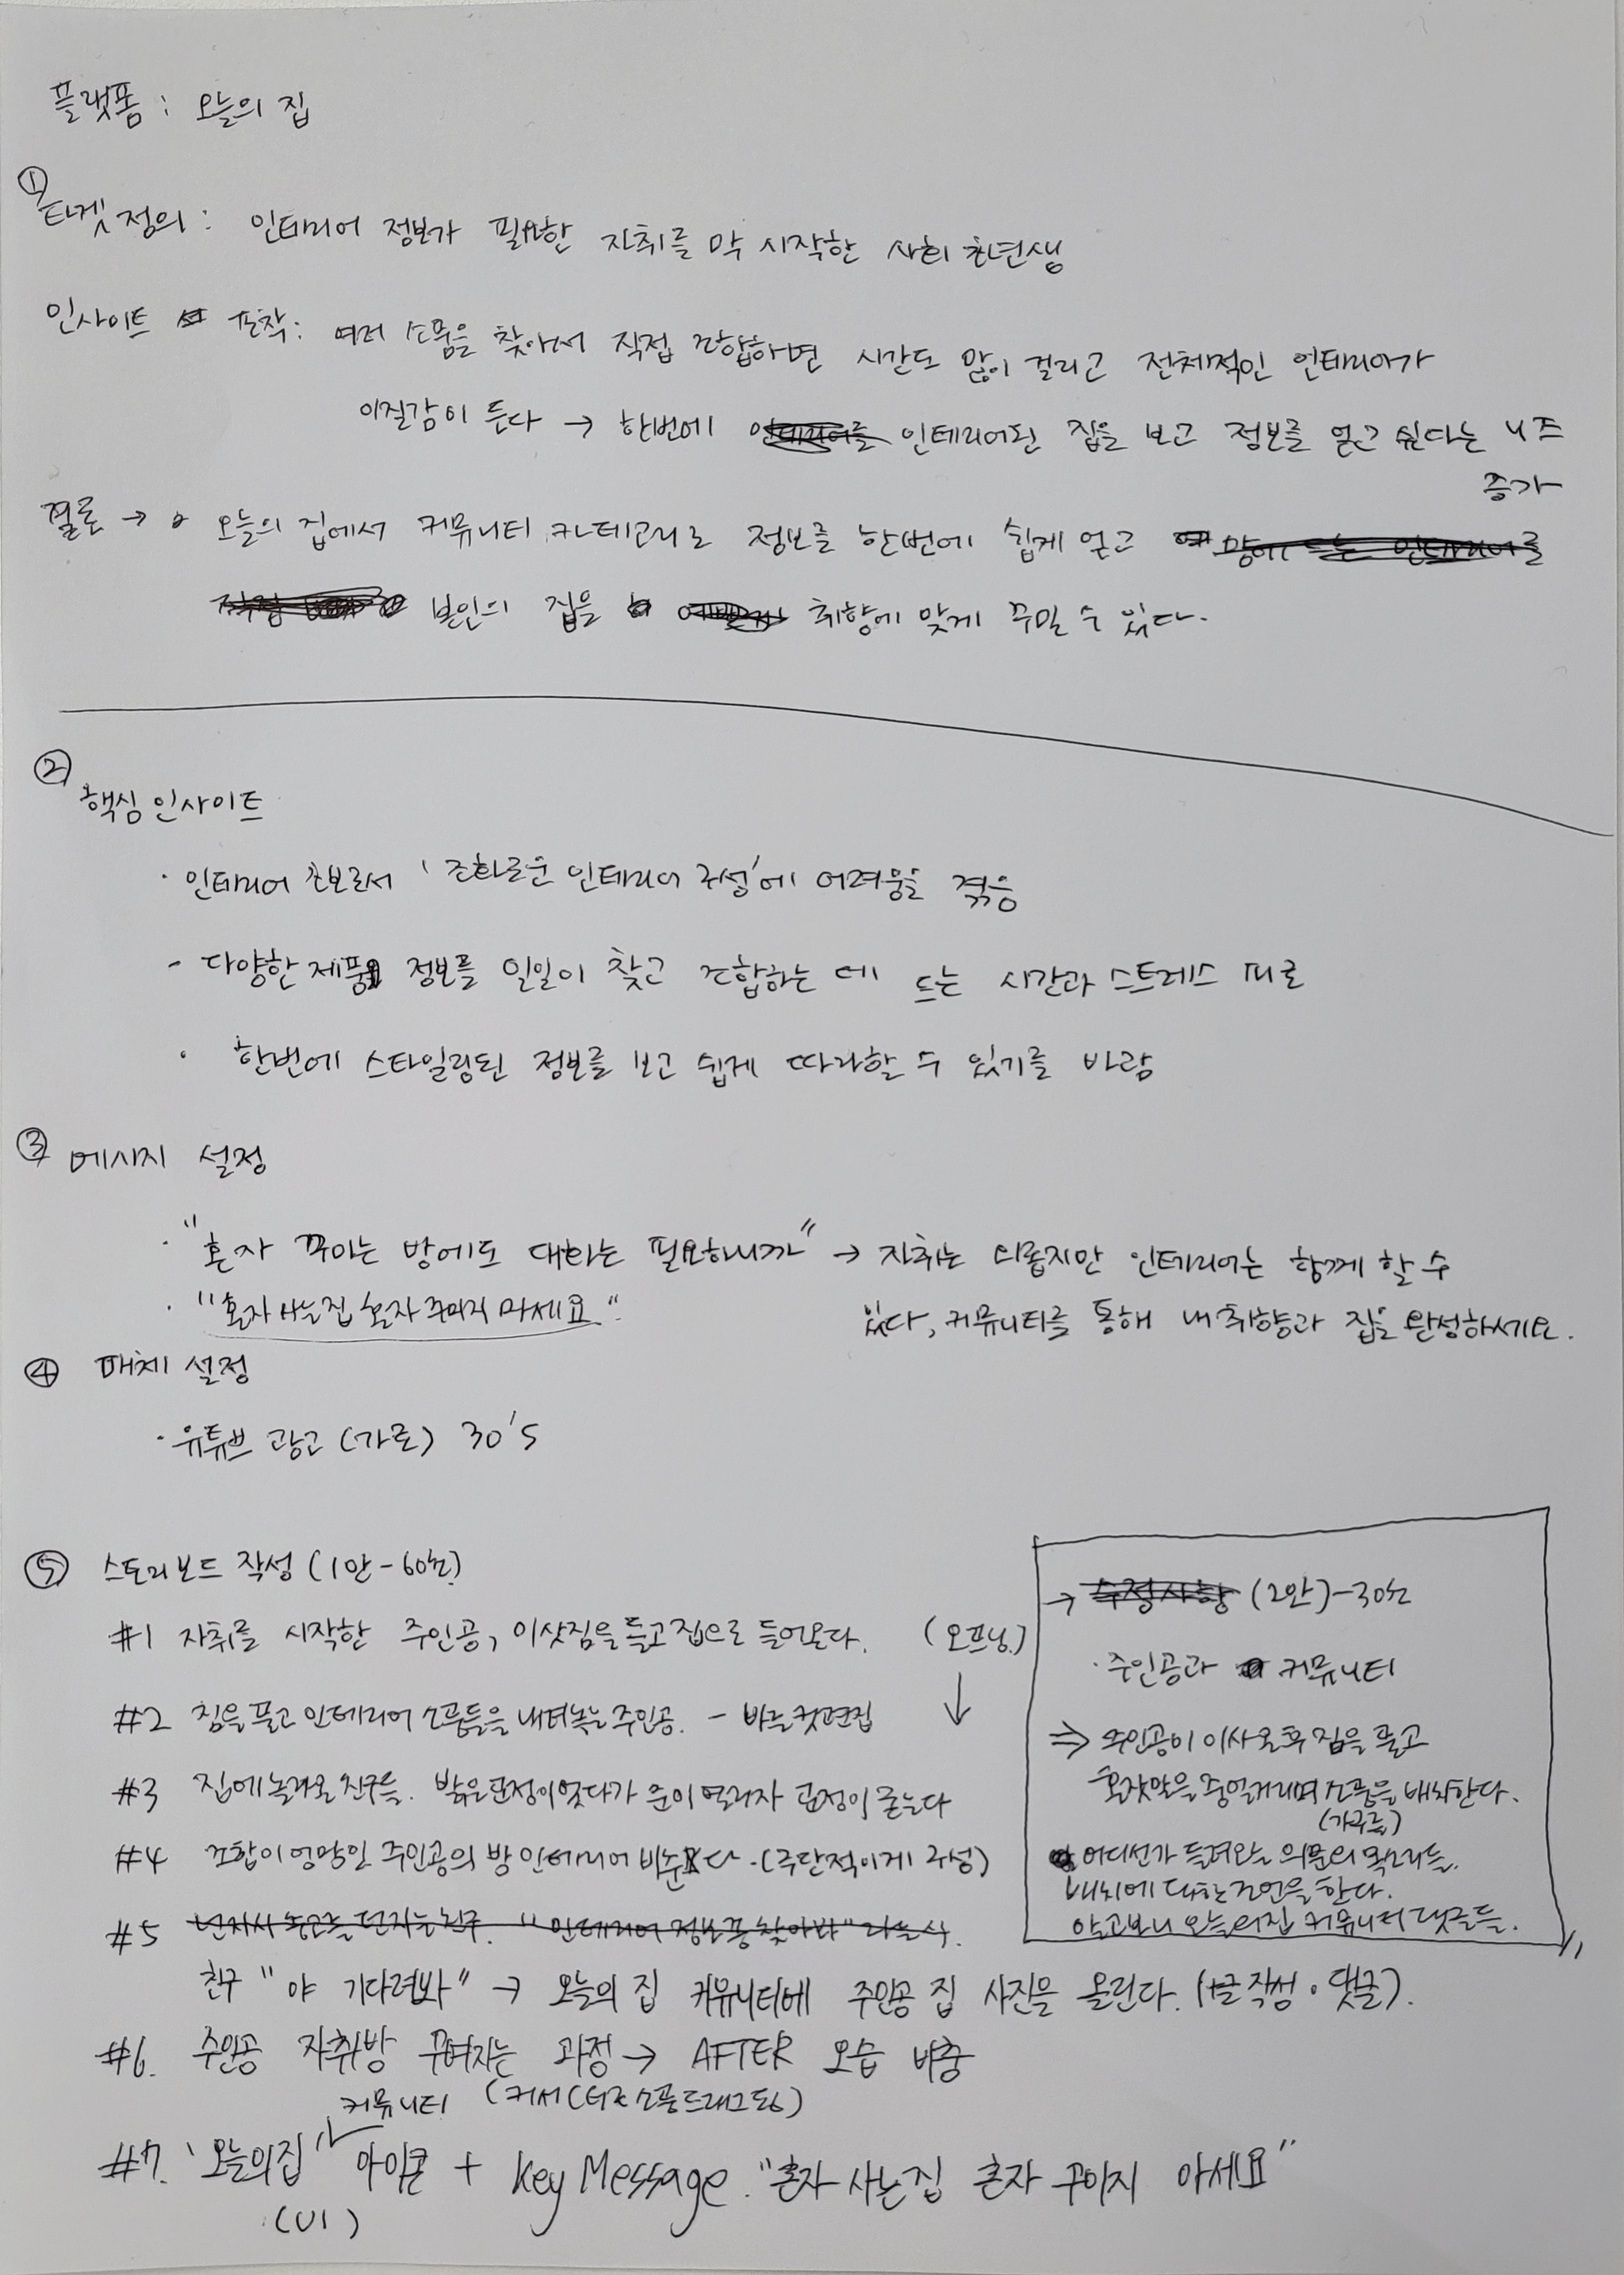 플랫폼 : 오늘의 집
① 타겟 정의 : 인테리어 정보가 필요한 자취를 막 시작한 사회 초년생
인사이트 포착: 여러 소품을 찾아서 직접 조합하면 시간도 많이 걸리고 전체적인 인테리어가
이질감이 든다 → 한번에 인테리어된 집을 보고 정보를 얻고 싶다는 니즈
증가
결론 → 오늘의 집에서 커뮤니티 카테고리로 정보를 한번에 쉽게 얻고
본인의 집을 취향에 맞게 꾸밀 수 있다.
②
핵심 인사이트
· 인테리어 초보로서 '조화로운 인테리어 구성'에 어려움을 겪음
- 다양한 제품 정보를 일일이 찾고 조합하는 데 드는 시간과 스트레스 피로
· 한번에 스타일링된 정보를 보고 쉽게 따라할 수 있기를 바람
③ 메시지 설정
· "혼자 꾸미는 방에도 대화는 필요하니까" → 자취는 외롭지만 인테리어는 함께 할 수
있다, 커뮤니티를 통해 내 취향과 집을 완성하세요.
· "혼자 사는 집 혼자 꾸미지 마세요"
④ 매체 설정
· 유튜브 광고 (가로) 30's
⑤ 스토리보드 작성 (1안 - 60초)
#1 자취를 시작한 주인공, 이삿짐을 들고 집으로 들어온다. (오프닝)
#2 짐을 풀고 인테리어 소품들을 내려놓는 주인공. - 빠른 컷편집
#3 집에 놀러온 친구들. 밝은 표정이었다가 문이 열리자 표정이 굳는다
#4 조합이 엉망인 주인공의 방 인테리어 비춘다. (극단적이게 구성)
#5 "인테리어 정보 좀 찾아봐" 라는 식.
친구 "야 기다려봐" → 오늘의 집 커뮤니티에 주인공 집 사진을 올린다. (+글 작성 · 댓글).
#6. 주인공 자취방 꾸며지는 과정 → AFTER 모습 비춤
(커서 소품 드래그 등)
커뮤니티
#7. '오늘의집' 아이콘 + Key Message. "혼자 사는 집 혼자 꾸미지 마세요"
(UI)
→ 수정사항 (2안) - 30초
· 주인공과 커뮤니티
⇒ 주인공이 이사온 후 짐을 풀고
혼잣말을 중얼거리며 소품을 배치한다.
(가구를)
어디선가 들려오는 의문의 목소리들.
배치에 대한 조언을 한다.
알고보니 오늘의집 커뮤니티 댓글들.